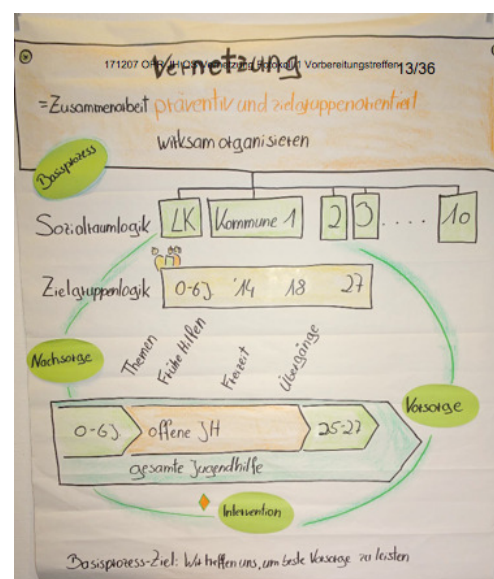 Vernetzung
171207 OPR JH QS Vernetzung Protokoll 1 Vorbereitungstreffen 13/36
=Zusammenarbeit präventiv und zielgruppenorientiert
wirksam organisieren
Basisprozess
Sozialraumlogik LK Kommune 1 2 3 .... 10
Zielgruppenlogik 0-6J. '14 18 27
Nachsorge
Themen Frühe Hilfen Freizeit Übergänge
Vorsorge
0-6J. offene JH 25-27
gesamte Jugendhilfe
Intervention
Basisprozess-Ziel: Wir treffen uns, um beste Vorsorge zu leisten